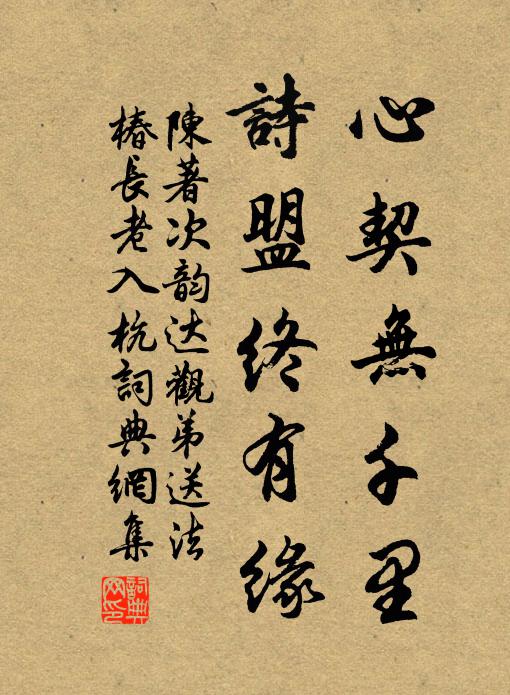 心契無千里
詩盟終有緣
陳著次韵达觀弟送法
椿長老入杭詞典網集
詞典网印